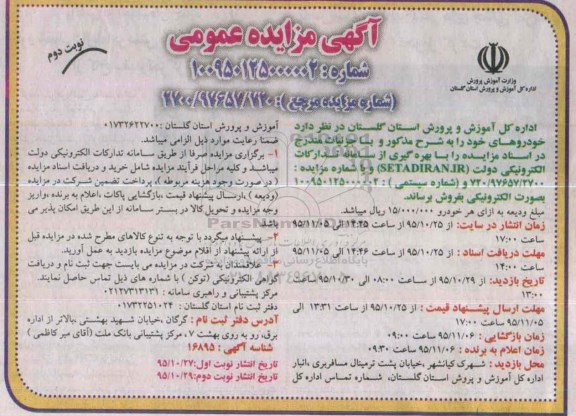 آگهی مزایده عمومی
شماره: ۱۰۰۹۵۰۱۲۵۰۰۰۰۰۲
(شماره مزایده مرجع): ۷۳۰/۹۷۶۵۷/۲۷۰۰
نوبت دوم
وزارت آموزش پرورش
اداره کل آموزش و پرورش استان گلستان
اداره کل آموزش و پرورش استان گلستان در نظر دارد
خودروهای خود را به شرح مذکور و با جزئیات مندرج
در اسناد مزایده را با بهره گیری از سامانه تدارکات
الکترونیکی دولت (SETADIRAN.IR) و با شماره مزایده :
۷۳۰/۹۷۶۵۷/۲۷۰۰ و (شماره سیستمی): ۱۰۰۹۵۰۱۲۵۰۰۰۰۰۲
بصورت الکترونیکی بفروش برساند.
مبلغ ودیعه به ازای هر خودرو ۱۵/۰۰۰/۰۰۰ ریال میباشد.
زمان انتشار در سایت: از ۹۵/۱۰/۲۵ از ساعت ۱۴:۴۵ الی ۹۵/۱۱/۰۵
ساعت ۱۷:۰۰
مهلت دریافت اسناد : از ۹۵/۱۰/۲۵ از ساعت ۱۴:۴۶ الی ۹۵/۱۱/۰۵
ساعت ۱۴:۰۰
تاریخ بازدید: از ۹۵/۱۰/۲۹ از ساعت ۰۸:۰۰ الی ۹۵/۱۰/۳۰ ساعت
۱۳:۰۰
مهلت ارسال پیشنهاد قیمت : از ۹۵/۱۰/۲۵ از ساعت ۱۳:۳۱ الی
۹۵/۱۱/۰۵ ساعت ۱۷:۰۰
زمان بازگشایی : ۹۵/۱۱/۰۶ ساعت ۰۹:۰۰
زمان اعلام به برنده : ۹۵/۱۱/۰۶ ساعت ۰۹:۳۰
محل بازدید : شهرک کیانشهر ،خیابان پشت ترمینال مسافربری ،انبار
اداره کل آموزش و پروش استان گلستان، شماره تماس اداره کل
آموزش و پرورش استان گلستان : ۰۱۷۳۲۶۲۲۷۰۰
ضمنا رعایت موارد ذیل الزامی میباشد.
۱- برگزاری مزایده صرفا از طریق سامانه تدارکات الکترونیکی دولت
میباشد و کلیه مراحل فرآیند مزایده شامل خرید و دریافت اسناد مزایده
( در صورت وجود هزینه مربوطه )، پرداخت تضمین شرکت در مزایده
(ودیعه ) ،ارسال پیشنهاد قیمت ،بازگشایی پاکات ،اعلام به برنده ،واریز
وجه مزایده و تحویل کالا در بستر سامانه از این طریق امکان پذیر می
باشد
۲- پیشنهاد میگردد با توجه به تنوع کالاهای مطرح شده در مزایده قبل
از ارائه پیشنهاد از اقلام موضوع مزایده بازدید به عمل آورید.
۳- علاقمندان به شرکت در مزایده می بایست جهت ثبت نام و دریافت
گواهی الکترونیکی (توکن ) با شماره های ذیل تماس حاصل نمایند
مرکز پشتیبانی و راهبری سامانه : ۰۲۱۲۷۳۱۳۱۳۱
دفتر ثبت نام استان گلستان : ۰۱۷۳۲۲۵۱۰۲۴
آدرس دفتر ثبت نام : گرگان ،خیابان شهید بهشتی ،بالاتر از اداره
برق، رو به روی بهشت ۷، مرکز پشتیبانی بانک ملت (آقای میر کاظمی )
شناسه آگهی : ۱۶۸۹۵
تاریخ انتشار نوبت اول:۹۵/۱۰/۲۷
تاریخ انتشار نوبت دوم:۹۵/۱۰/۲۹